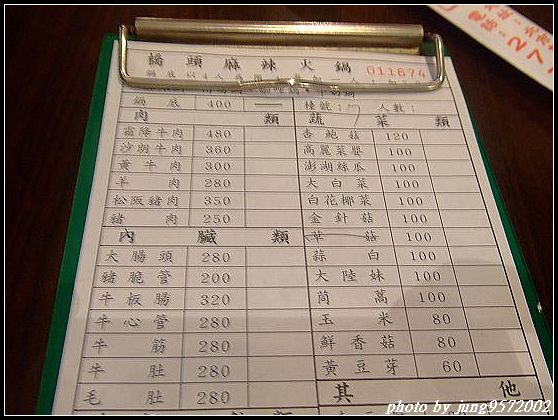 橋頭麻辣火鍋 011674
鍋底 400 檯號: 7 人數:
肉類 蔬菜類
霜降牛肉 480 杏鮑菇 120
沙朗牛肉 360 高麗菜嬰 100
黃牛肉 300 澎湖絲瓜 100
羊肉 280 大白菜 100
松阪豬肉 350 白花椰菜 100
豬肉 250 金針菇 100
內臟類 草菇 100
大腸頭 280 蒜白 100
豬脆管 200 大陸妹 100
牛板腸 320 茼蒿 100
牛心管 280 玉米 80
牛筋 280 鮮香菇 80
牛肚 280 黃豆芽 60
毛肚 280 其他
photo by jung9572002